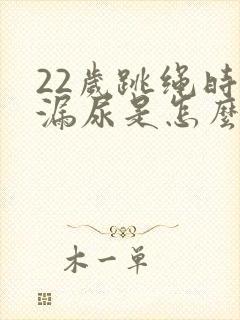 22歲跳绳時
漏尿是怎麼
木一单